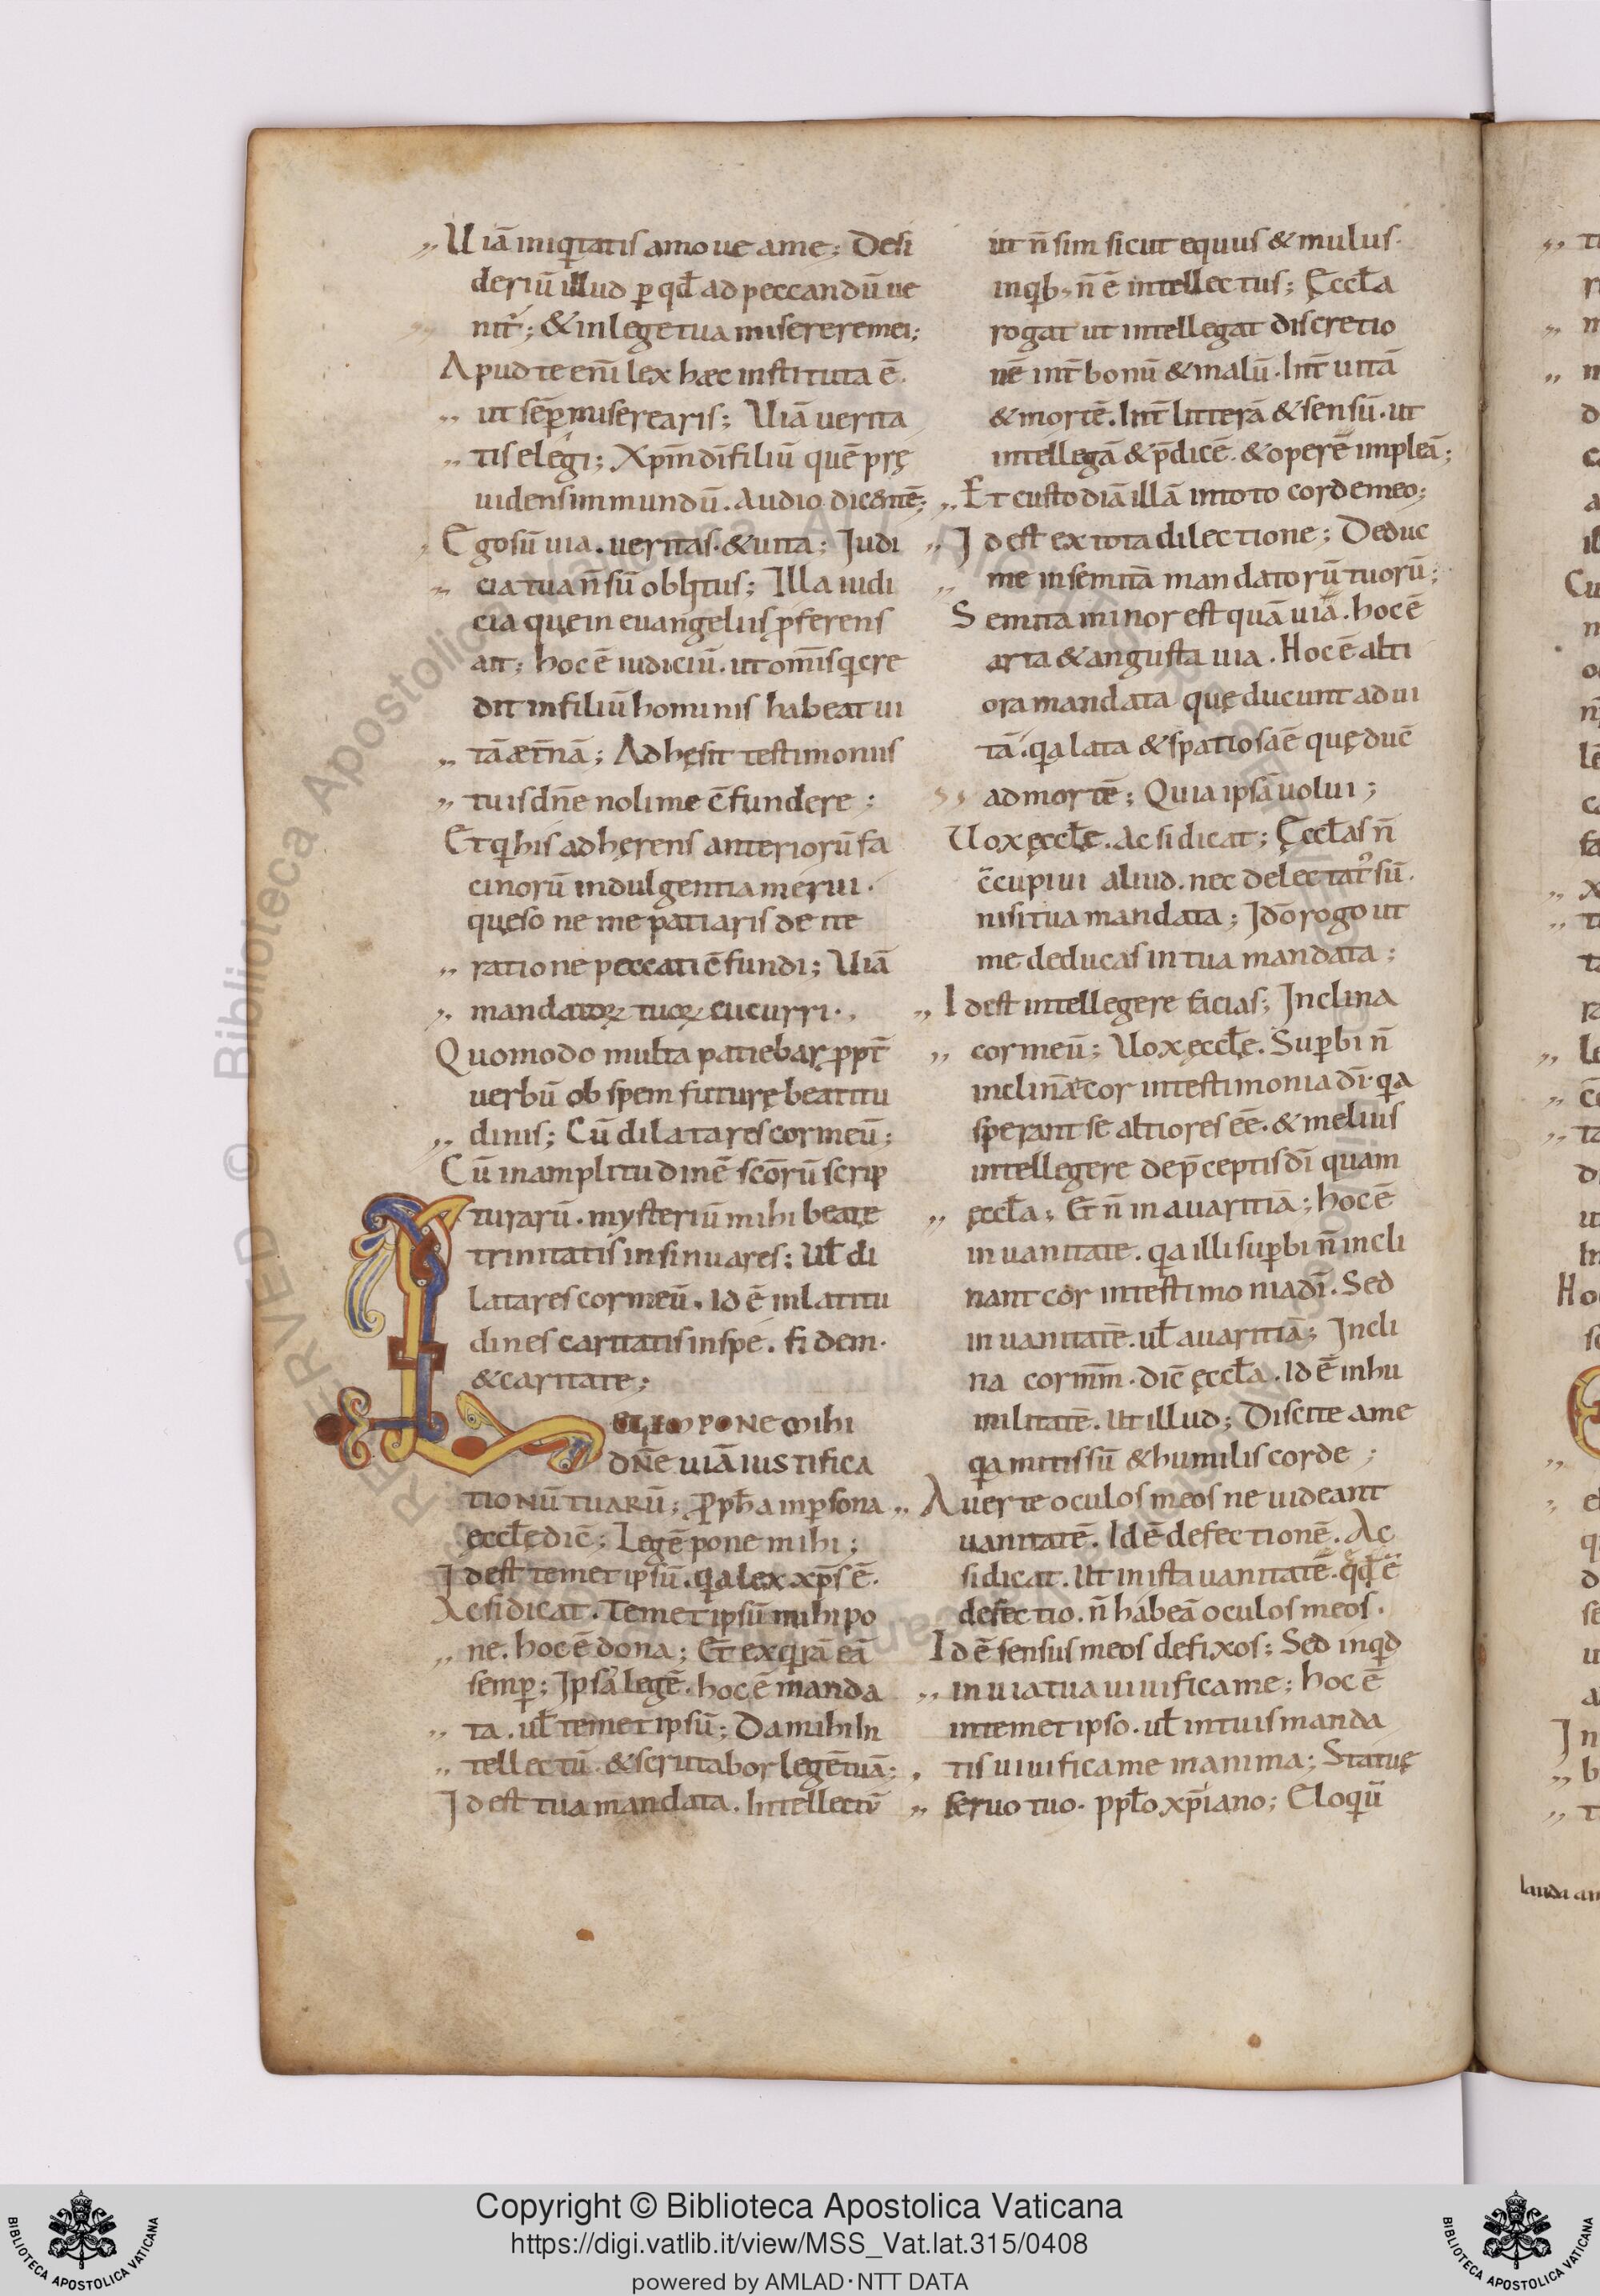 Uiā iniqitatis amoue ame; Desi
deriū illud p qđ ad peccandū ue
nit᷒; & in lege tua miserere mei;
Apud te enī lex hæc instituta ē.
ut sēp miserearis; Uiā uerita
tis elegi; Xp̄m dī filiū quē prę
uidens in mundū. audio dicentē;
Ego sū uia. ueritas. & uita; Iudi
cia tua n̄ sū oblitus; Illa iudi
cia quę in euangeliis p̄ferens
ait; hoc ē iudiciū. ut om̄is qi cre
dit in filiū hominis habeat ui
tā æt̄nā; Adhęsit testimoniis
tuis dn̄e noli me c̄fundere;
Et qi his adhęrens anteriorū fa
cinorū indulgentia merui.
quęso ne me patiaris de ite
ratione peccati c̄fundi; Uiā
mandatoꝝ tuoꝝ cucurri.
Quomodo multa patiebar ppt̄
uerbū ob spem futurę beatitu
dinis; Cū dilatares cor meū;
Cū in amplitudinē sc̄orū scrip
turarū. mysteriū mihi beatę
trinitatis insinuares; Uł di
latares cor meū. Id ē in latitu
dines caritatis in spe. fidem.
& caritate;
LEGĒ PONE MIHI
DN̄E UIĀ IUSTIFICA
TIONŪ TUARŪ; Ppħa in psona
ęccłę dic̄; Legē pone mihi;
Id est temet ipsū. qia lex xp̄s ē.
Ac si dicat. Temet ipsū mihi po
ne. hoc ē dona; Et exqirā eā
semp; Ipsā legē. hoc ē manda
ta. uł temet ipsū; Da mihi In
tellectū. & scrutabor legē tuā;
Id est tua mandata. Intellectū
ut n̄ sim sicut equus & mulus.
in qib; n̄ ē intellectus; Ęccła
rogat ut intellegat discretio
nē int̄ bonū & malū. Int̄ uitā
& mortē. Int̄ litterā & sensū. ut
intellegā & p̄dicē. & operē impleā;
Et custodiā illā in toto corde meo;
Id est ex tota dilectione; Deduc
me in semitā mandatorū tuorū;
Semita minor est quā uiā. hoc ē
arta & angusta uia. Hoc ē alti
ora mandata quę ducunt ad ui
tā. qia lata & spatiosa ē quę duc̄
ad mortē; Quia ipsā uolui;
Uox ęccłę. Ac si dicat; Ęccłas n̄
c̄cupiui aliud. nec delectat᷒ sū.
nisi tua mandata; Ido rogo ut
me deducas in tua mandata;
Id est intellegere facias; Inclina
cor meū; Uox ęccłę. Supbi n̄
inclinā cor in testimonia dī. qia
sperant se altiores eē. & melius
intellegere de p̄ceptis dī quam
ęccła; Et n̄ in auaritiā; hoc ē
in uanitate. qia illi supbi n̄ incli
nant cor in testimonia dī. Sed
in uanitatē. uł auaritiā; Incli
na cor m̄m. dic̄ ęccła. Id ē in hu
militatē. Ut illud; Discite a me
qia mitis sū & humilis corde;
Auerte oculos meos ne uideant
uanitatē. Id ē defectionē. Ac
si dicat. Ut in ista uanitatē. qđ ē
defectio. n̄ habeā oculos meos.
Id ē sensus meos defixos; Sed inqid
in uia tua uiuifica me; hoc ē
in temet ipso. uł in tuis manda
tis uiuifica me in anima; Statuę
seruo tuo. ppło xp̄iano; Eloqiū
Copyright © Biblioteca Apostolica Vaticana
https://digi.vatlib.it/view/MSS_Vat.lat.315/0408
powered by AMLAD·NTT DATA
BIBLIOTECA APOSTOLICA VATICANA
BIBLIOTECA APOSTOLICA VATICANA